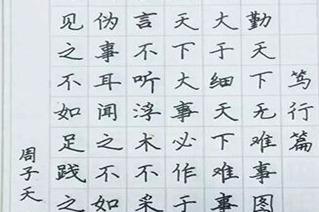 笃行篇
勤天下无难事图
大于细天下难事
天下大事必作于
言不听浮术不采
伪事耳闻之不如
见之不如足践之
周子天